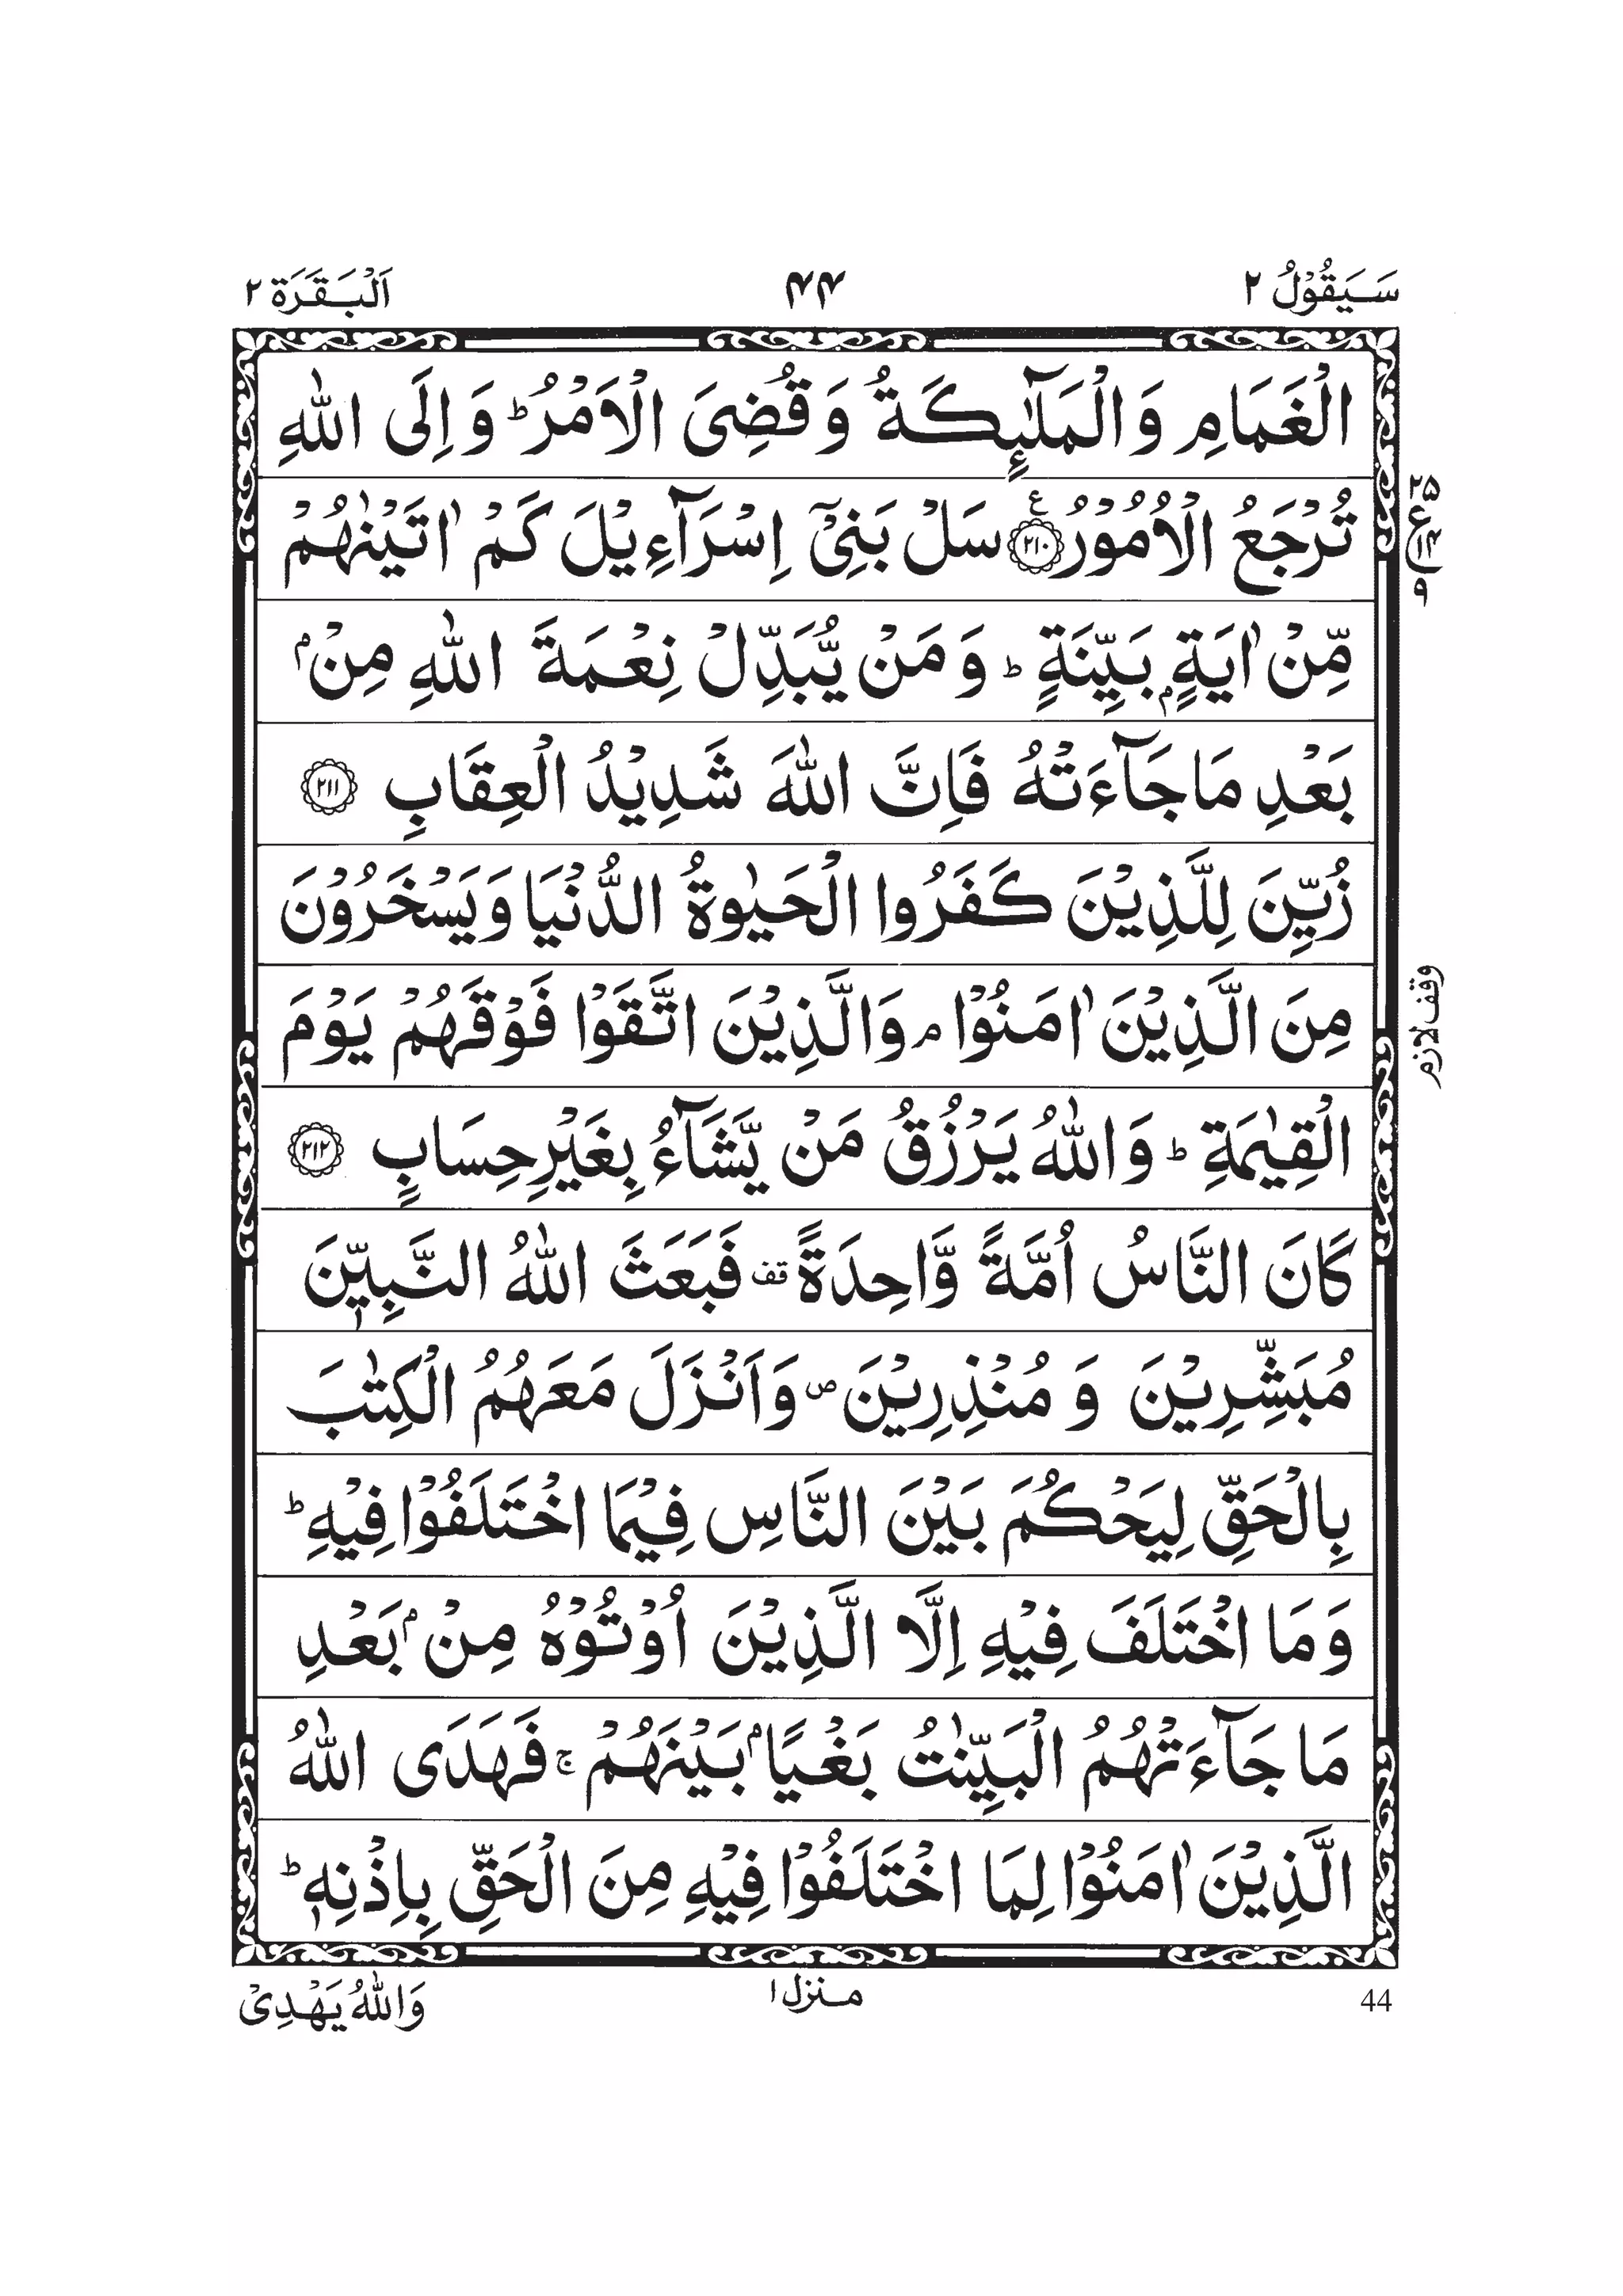 سَيَقُوْلُ ٢
٤٤
اَلْبَقَرَة ٢
الْغَمَامِ وَالْمَلٰٓئِكَةُ وَقُضِیَ الْاَمْرُ ؕ وَاِلَی اللّٰهِ
تُرْجَعُ الْاُمُوْرُ ﴿۲۱۰﴾ ع سَلْ بَنِیْۤ اِسْرَآءِیْلَ كَمْ اٰتَیْنٰهُمْ
مِّنْ اٰیَةٍۭ بَیِّنَةٍ ؕ وَمَنْ یُّبَدِّلْ نِعْمَةَ اللّٰهِ مِنْۢ
بَعْدِ مَا جَآءَتْهُ فَاِنَّ اللّٰهَ شَدِیْدُ الْعِقَابِ ﴿۲۱۱﴾
زُیِّنَ لِلَّذِیْنَ كَفَرُوا الْحَیٰوةُ الدُّنْیَا وَیَسْخَرُوْنَ
مِنَ الَّذِیْنَ اٰمَنُوْا ۘ وَالَّذِیْنَ اتَّقَوْا فَوْقَهُمْ یَوْمَ
الْقِیٰمَةِ ؕ وَاللّٰهُ یَرْزُقُ مَنْ یَّشَآءُ بِغَیْرِ حِسَابٍ ﴿۲۱۲﴾
كَانَ النَّاسُ اُمَّةً وَّاحِدَةً قف فَبَعَثَ اللّٰهُ النَّبِیّٖنَ
مُبَشِّرِیْنَ وَمُنْذِرِیْنَ ص وَاَنْزَلَ مَعَهُمُ الْكِتٰبَ
بِالْحَقِّ لِیَحْكُمَ بَیْنَ النَّاسِ فِیْمَا اخْتَلَفُوْا فِیْهِ ؕ
وَمَا اخْتَلَفَ فِیْهِ اِلَّا الَّذِیْنَ اُوْتُوْهُ مِنْۢ بَعْدِ
مَا جَآءَتْهُمُ الْبَیِّنٰتُ بَغْیًۢا بَیْنَهُمْ ۚ فَهَدَی اللّٰهُ
الَّذِیْنَ اٰمَنُوْا لِمَا اخْتَلَفُوْا فِیْهِ مِنَ الْحَقِّ بِاِذْنِهٖ ؕ
٢٥
ع
١٤
٩
وقف لازم
44
منزل ١
وَاللّٰهُ یَهْدِیْ